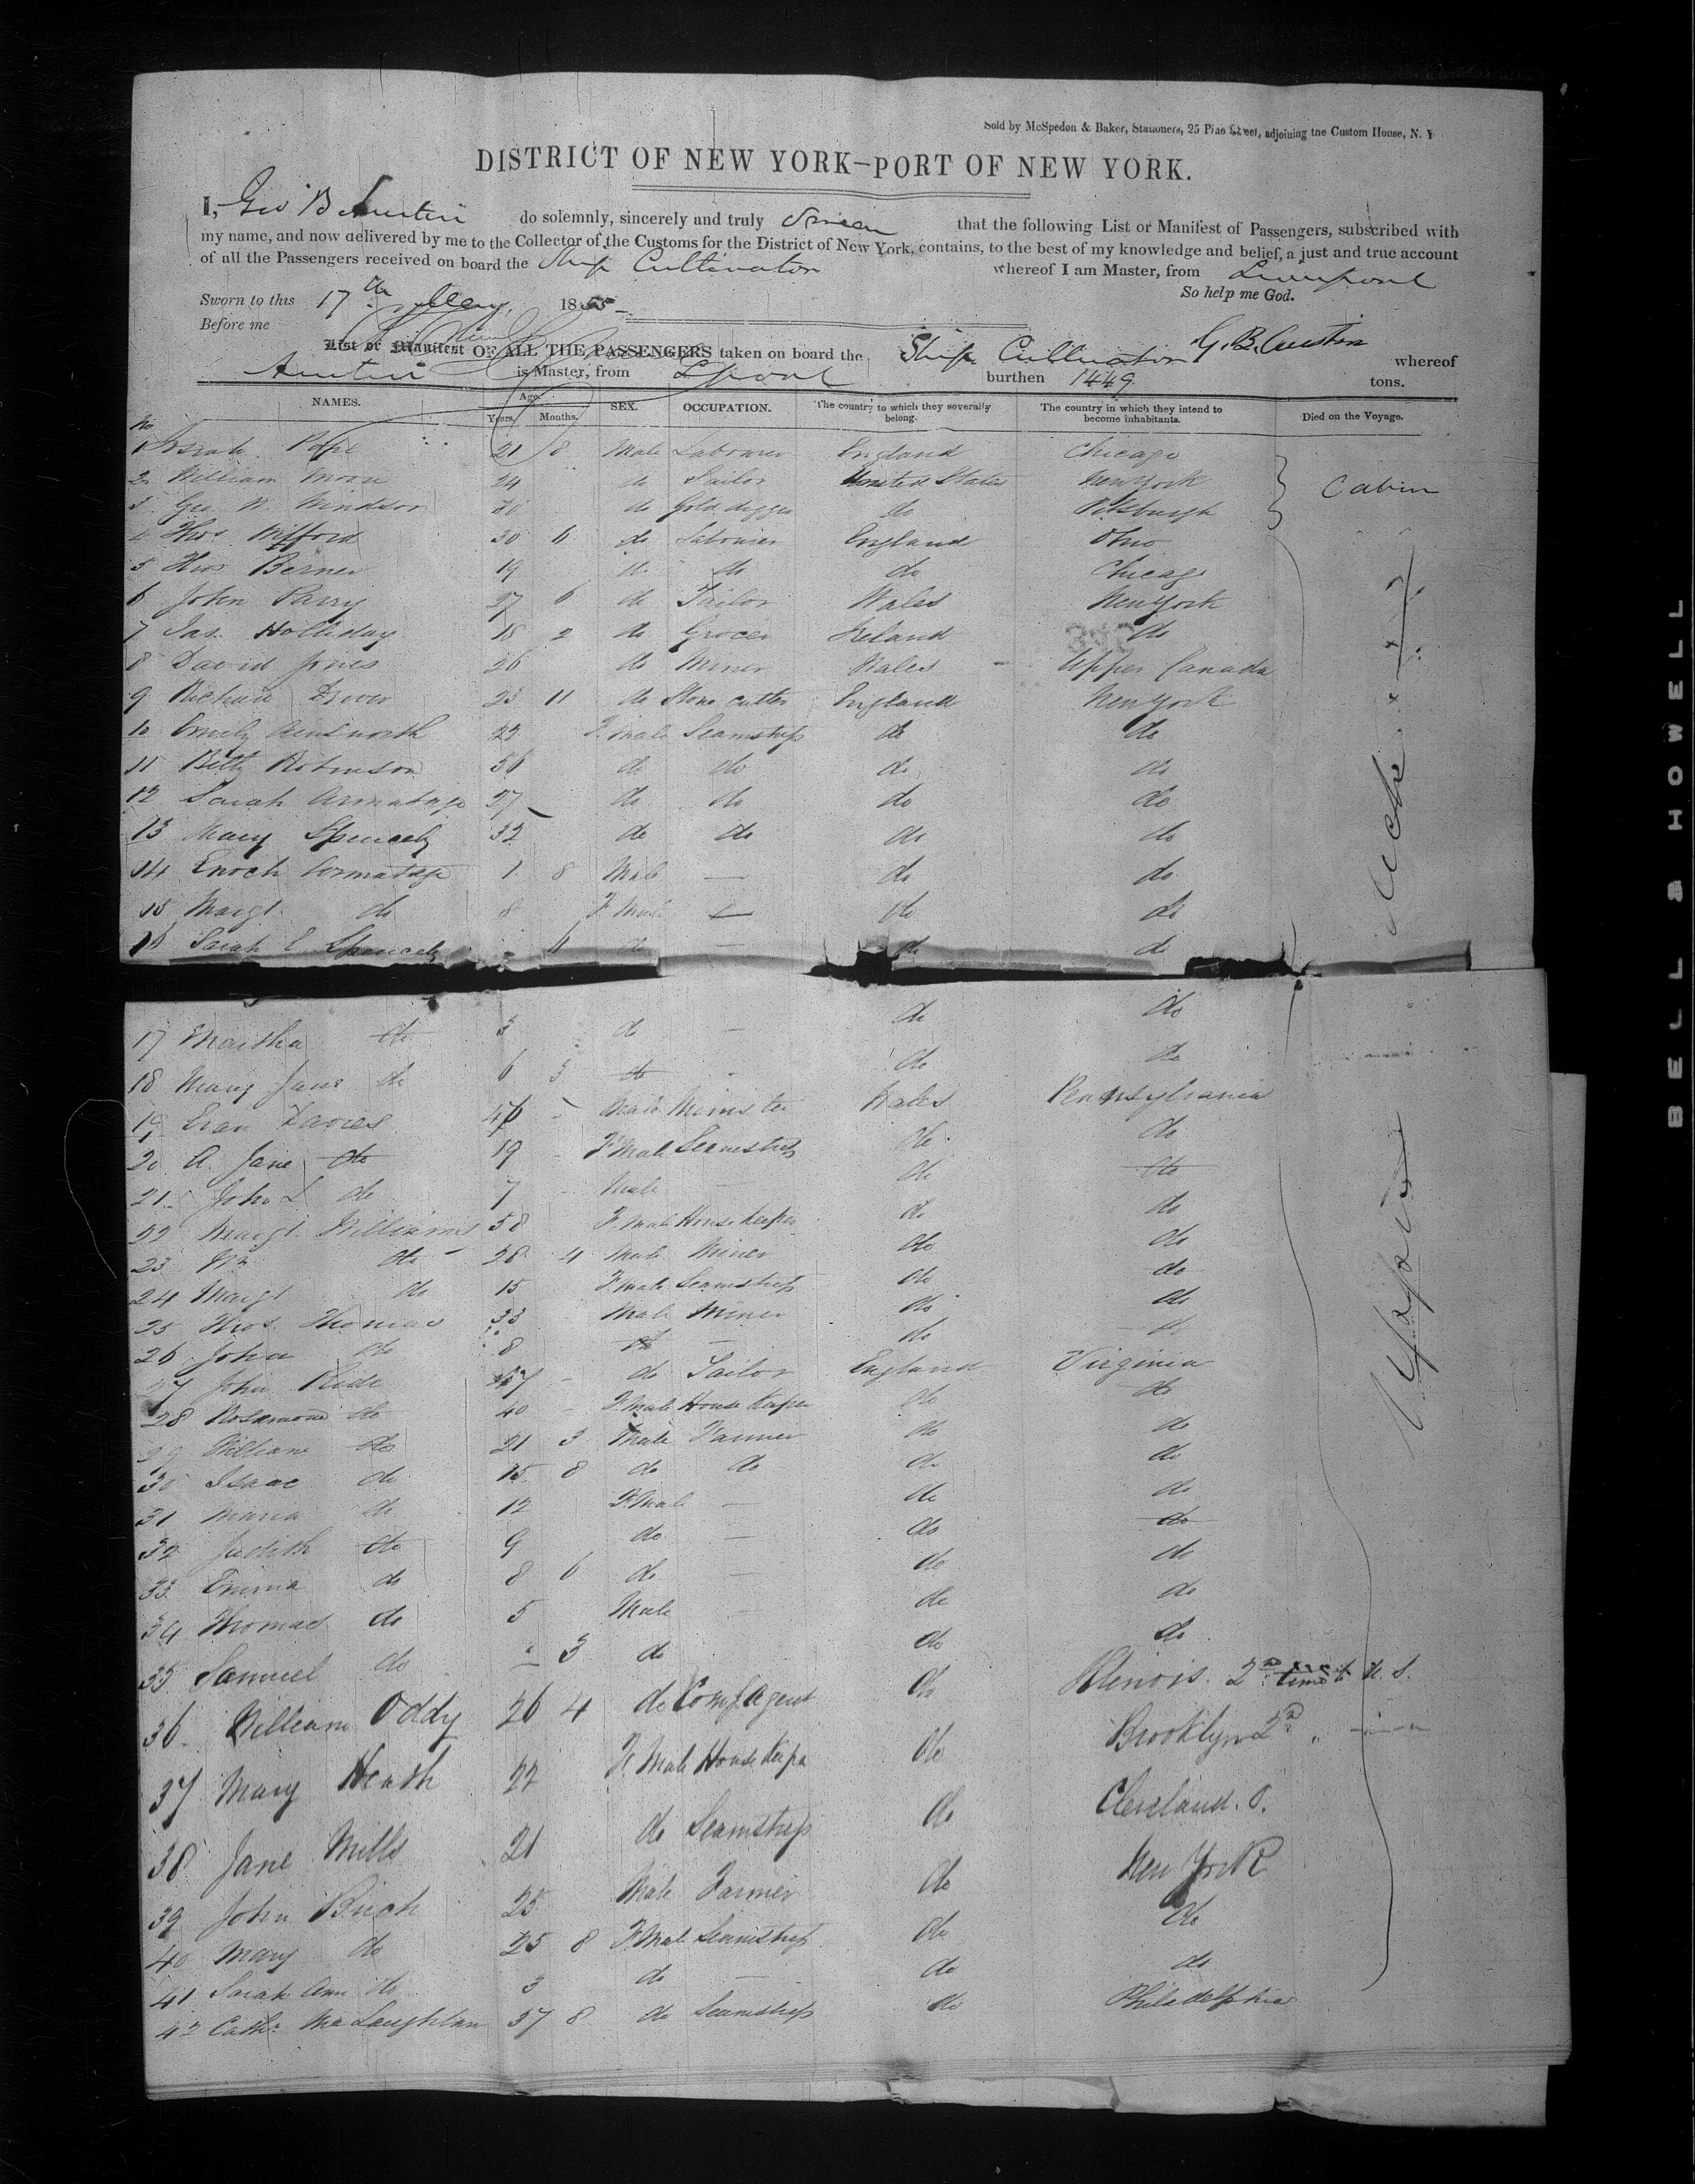 Sold by McSpedon & Baker, Stationers, 25 Pine Street, adjoining the Custom House, N. Y
DISTRICT OF NEW YORK—PORT OF NEW YORK.
I, Geo B Austin do solemnly, sincerely and truly Swear that the following List or Manifest of Passengers, subscribed with
my name, and now delivered by me to the Collector of the Customs for the District of New York, contains, to the best of my knowledge and belief, a just and true account
of all the Passengers received on board the Ship Cultivator whereof I am Master, from Liverpool
So help me God.
Sworn to this 17th May, 1855
Before me
List or Manifest OF ALL THE PASSENGERS taken on board the Ship Cultivator G. B. Austin whereof
Austin is Master, from Lpool burthen 1449 tons.
NAMES. Age. Years. Months. SEX. OCCUPATION. The country to which they severally belong. The country in which they intend to become inhabitants. Died on the Voyage.
No
1 Pope 21 8 Male Labourer England Chicago
2 William Moon 24 do Sailor United States New York Cabin
3 Geo W. Windsor 30 do Gold digger do Pittsburgh
4 Thos Mifford 30 6 do Labourer England Ohio
5 Thos Berner 19 do do do Chicago
6 John Parry 27 6 do Tailor Wales New York
7 Jas. Holliday 18 2 do Grocer Ireland do
8 David Jones 26 do Miner Wales Upper Canada
9 Richard 23 11 do Stone cutter England New York
10 Emily Ainsworth 23 F. Male Seamstress do do
11 Betty Robinson 56 do do do do
12 Sarah Armatage 27 do do do do
13 Mary Spencely 32 do do do do
14 Enoch Armatage 1 8 Male — do do
15 Margt. do 8 F. Male — do do
16 Sarah E Spencely 6 do — do do
17 Martha do 3 do — do do
18 Mary Jane do 6 3 do do do
19 Evan Davies 46 Male Minister Wales Pennsylvania
20 A. Jane do 19 F Male Seamstress do do
21 John L do 7 Male — do do
22 Margt. Williams 58 F. Male House Keeper do do
23 Wm do 28 4 Male Miner do do
24 Margt do 15 F. Male Seamstress do do
25 Thos. Thomas 33 Male Miner do do
26 John do 8 do — do do
27 John Ride 47 do Tailor England Virginia
28 Rosamond do 40 F. Male House Keeper do do
29 William do 21 3 Male Farmer do do
30 Isaac do 15 8 do do do do
31 Maria do 12 F. Male — do do
32 Judith do 9 do — do do
33 Emma do 8 6 do — do do
34 Thomas do 5 Male — do do
35 Samuel do " 3 do do do
36 William Oddy 26 4 do Agent do Illinois. 2nd time to U. S.
37 Mary Heath 22 F. Male House Keeper do Brooklyn 2nd "
38 Jane Mills 21 do Seamstress do Cleveland. O.
39 John Birch 25 Male Farmer do New York
40 Mary do 25 8 F. Male Seamstress do do
41 Sarah Ann do 3 do — do do
42 Cath. MacLaughlan 37 8 do Seamstress do Philadelphia
BELL & HOWELL